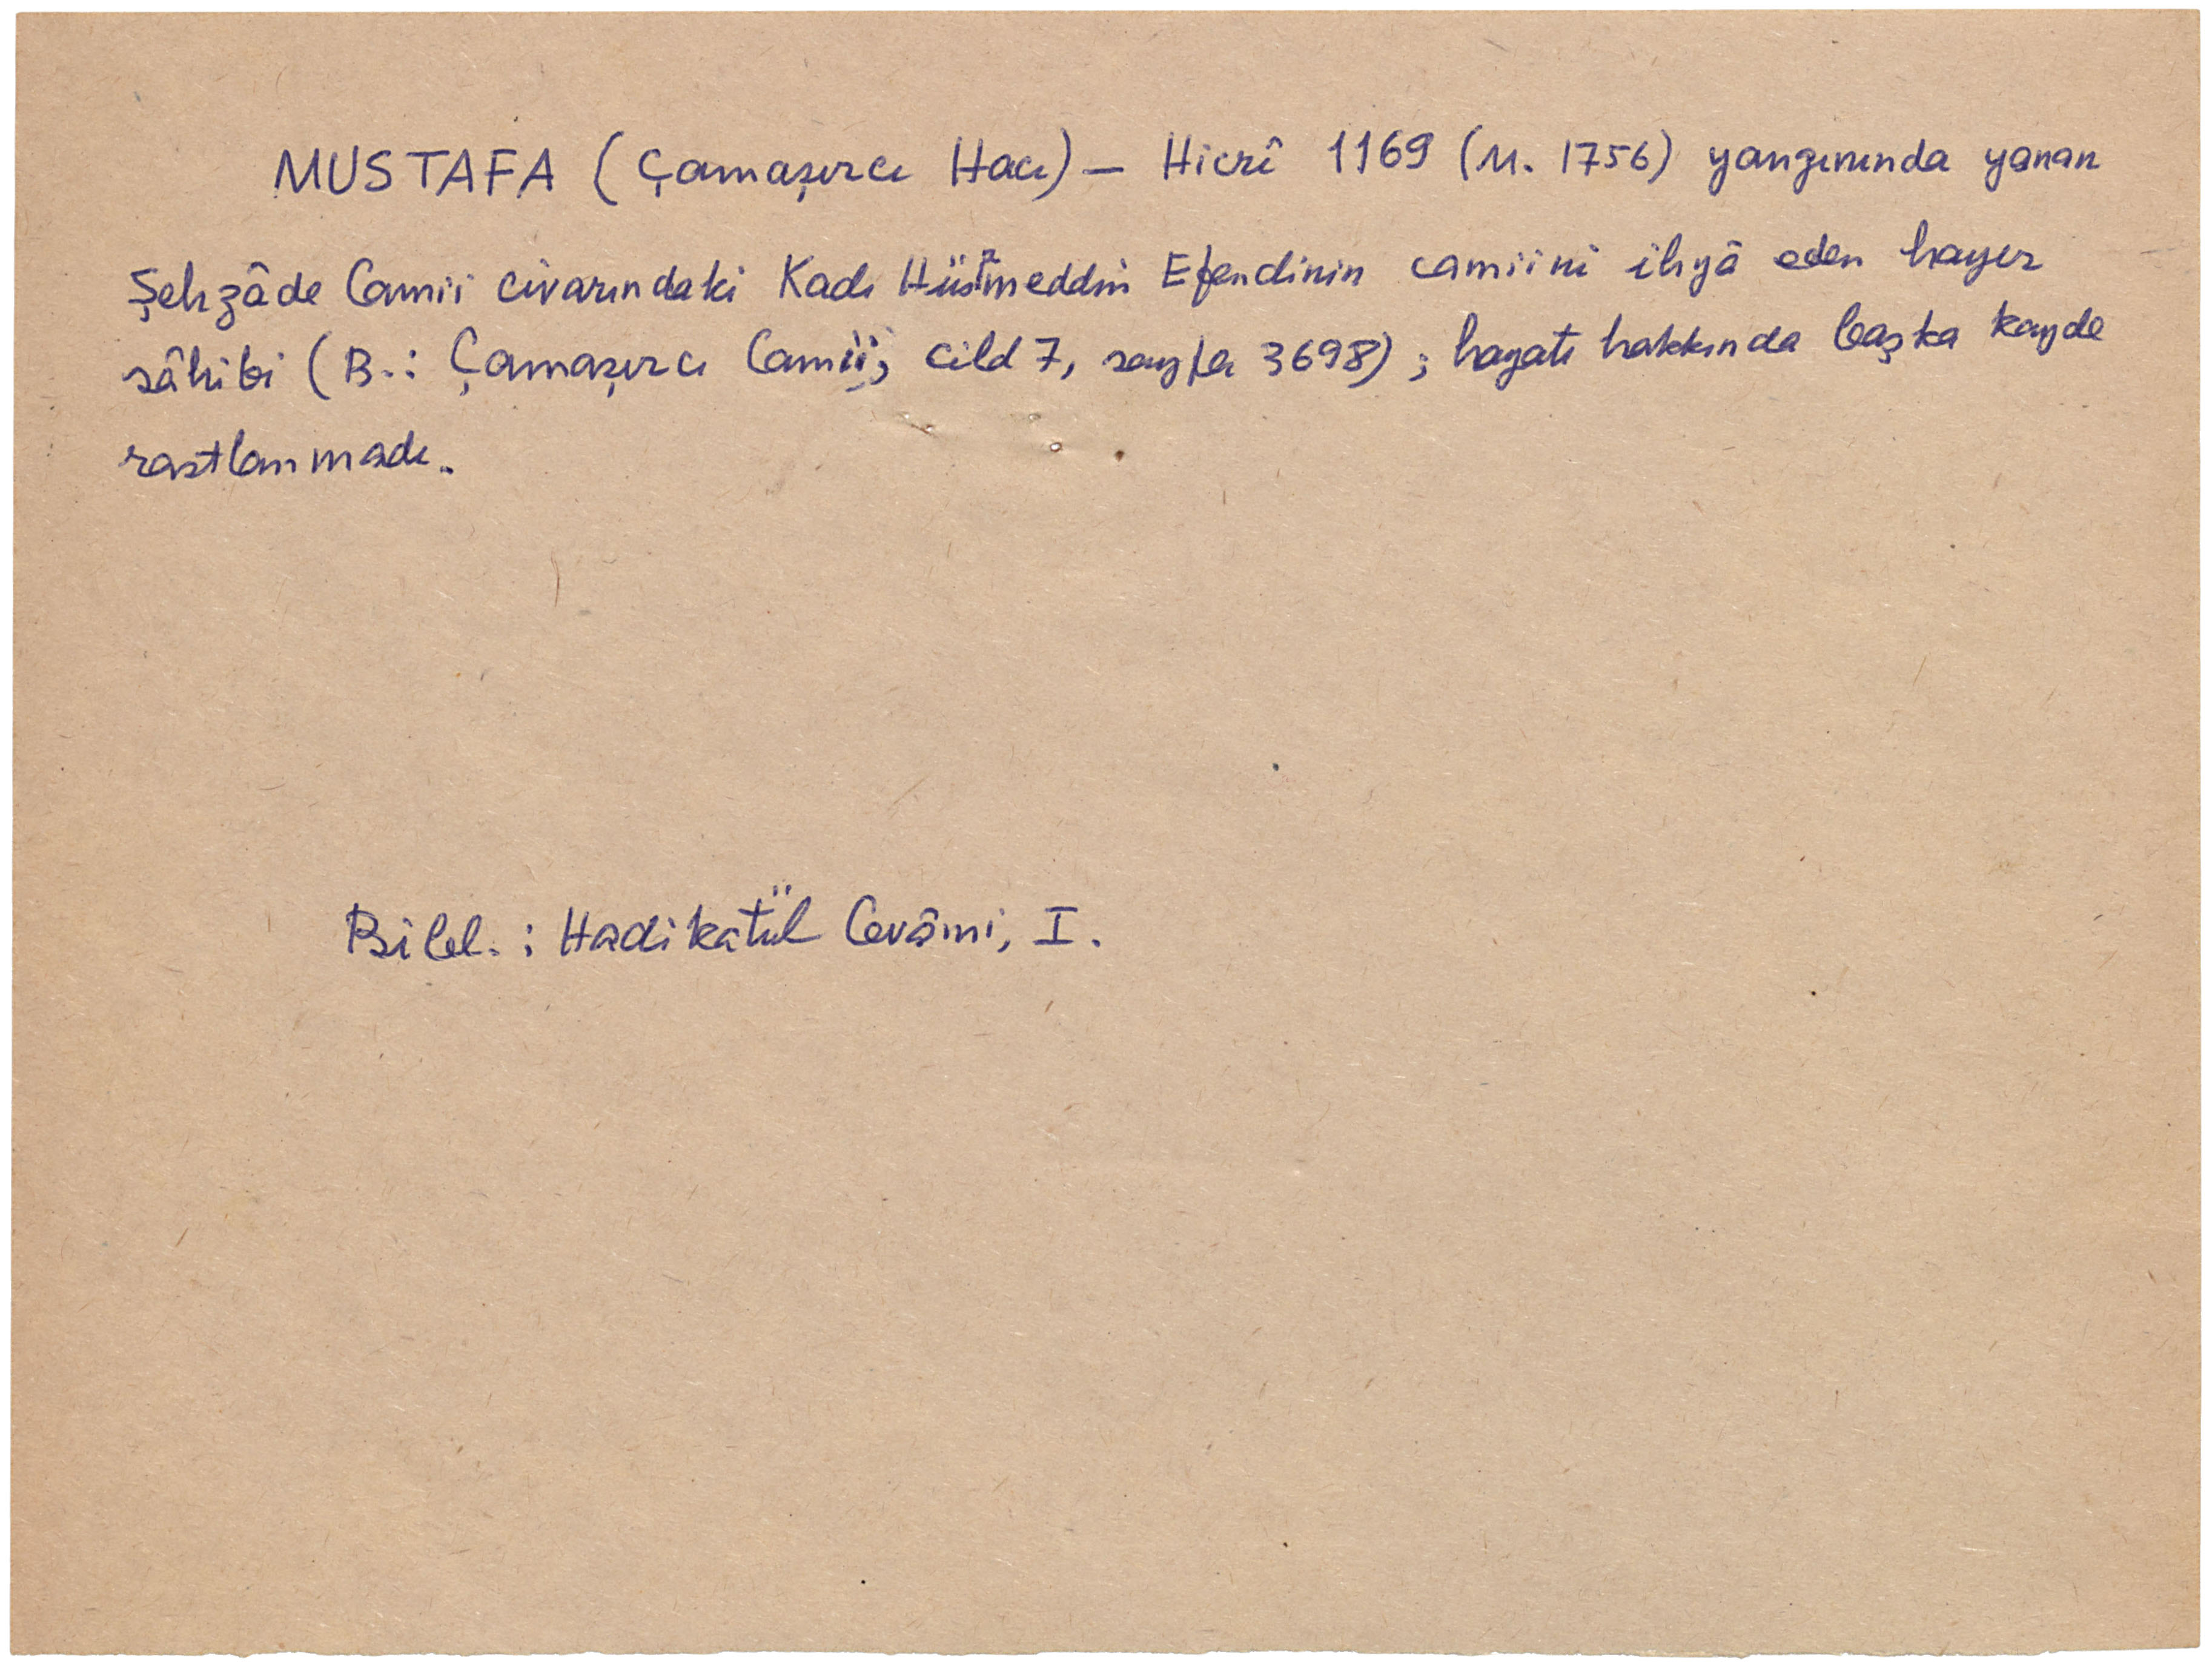 MUSTAFA (Çamaşırcı Hacı) — Hicrî 1169 (M. 1756) yangınında yanan
Şehzâde Camii civarındaki Kadı Hüsâmeddin Efendinin camiini ihyâ eden hayır
sâhibi (B.: Çamaşırcı Camii, cild 7, sayfa 3698) ; hayatı hakkında başka kayde
rastlanmadı.
Bibl. : Hadikatül Cevâmi, I.